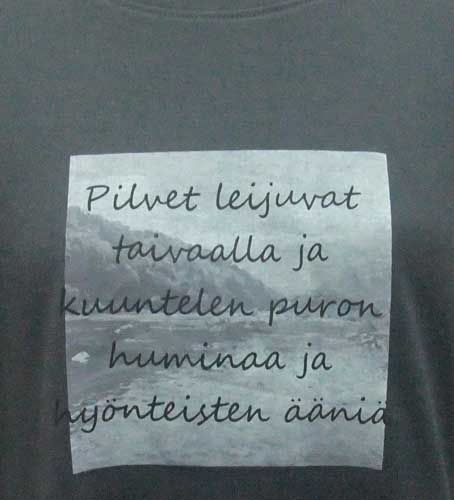 Pilvet leijuvat
taivaalla ja
kuuntelen puron
huminaa ja
hyönteisten ääniä